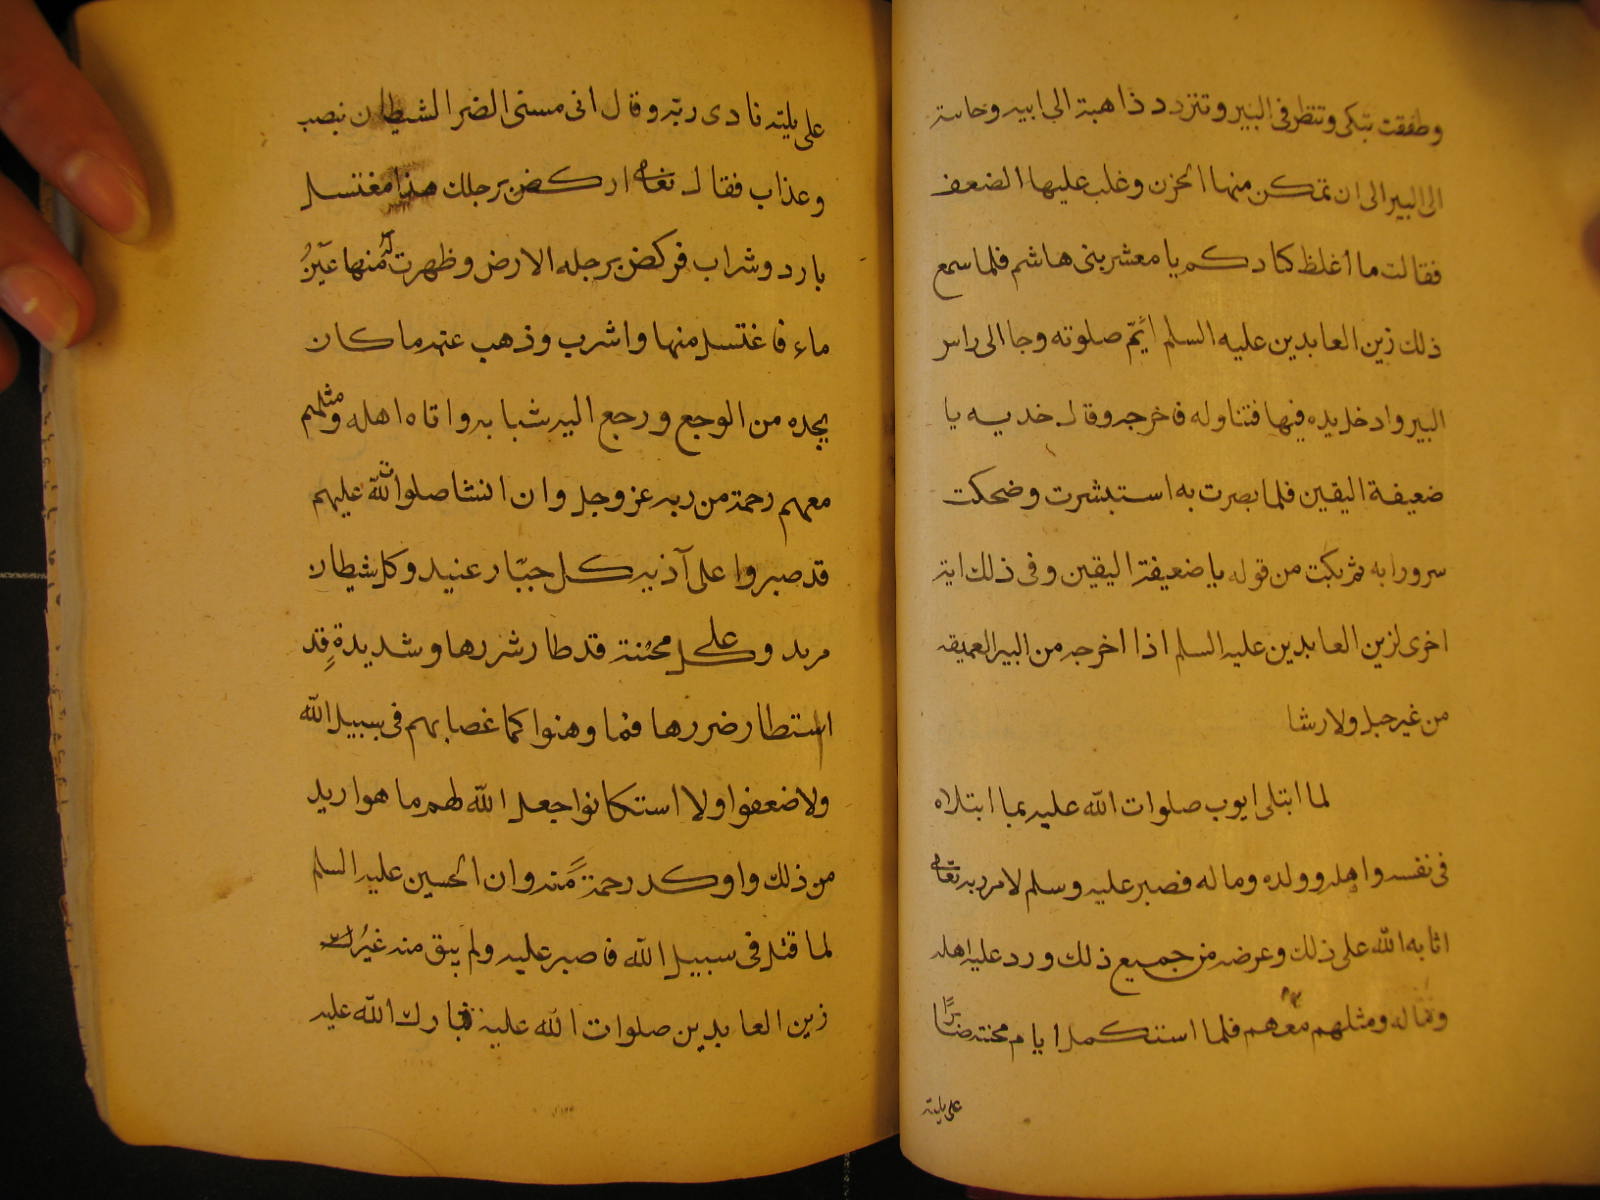 وطفقت تبكى وتنظر فى البير وتتردد ذاهبة الى ابيه وجاىية
الى البير الى ان تمكن منها الحزن وغلب عليها الضعف
فقالت ما اغلظ كبادكم يا معشر بنى هاشم فلما سمع
ذلك زين العابدين عليه السلم اتمّ صلوته وجا الى راس
البير وادخل يده فيها فتناوله فاخرجه وقال خديه يا
ضعيفة اليقين فلما بصرت به استبشرت وضحكت
سرورا به ثم بكت من قوله يا ضعيفة اليقين وفى ذلك اية
اخرى لزين العابدين عليه السلم اذا اخرجه من البير العميقه
من غير حبل ولا رشا
لما ابتلى ايوب صلوات الله عليه بما ابتلاه
فى نفسه واهله وولده وماله فصبر عليه وسلم لامر ربه تعالى
اثابه الله على ذلك وعرضه من جميع ذلك ورد عليه اهله
وماله ومثلهم معهم فلما استكمل ايام محنته صابرًا
على بليته
على بليته نادى ربّه وقال انى مسنى الضر الشيطان بنصب
وعذاب فقال تعالى اركض برجلك هذا مغتسل
بارد وشراب فركض برجله الارض وظهرت له منها عَيْنُ
ماء فاغتسل منها واشرب وذهب عنه ما كان
يجده من الوجع ورجع اليه شبابه واتاه اهله ومثلهم
معهم رحمة من ربه عز وجل وان النشا صلوات الله عليهم
قد صبروا على آذيه كل جبّار عنيد وكل شيطان
مريد وعلى كل محنة قد طار شررها وشديدةٍ قد
استطار ضررها فما وهنوا كما غصابهم فى سبيل الله
ولا ضعفوا ولا استكانوا جعل الله لهم ما هو ازيد
من ذلك واوكد رحمةً منه وان الحسين عليه السلم
لما قتل فى سبيل الله فاصبر عليه ولم يبق منه غيرُ
زين العابدين صلوات الله عليه فبارك الله عليه